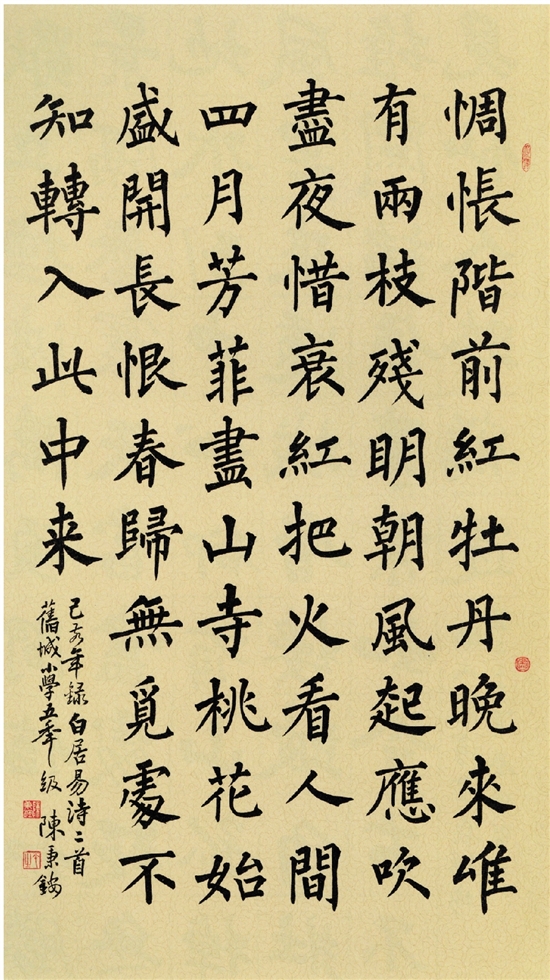 惆悵階前紅牡丹晚來唯
有兩枝殘明朝風起應吹
盡夜惜衰紅把火看人間
四月芳菲盡山寺桃花始
盛開長恨春歸無覓處不
知轉入此中来
己亥年録白居易诗二首
舊城小學五年级 陳秉鈫